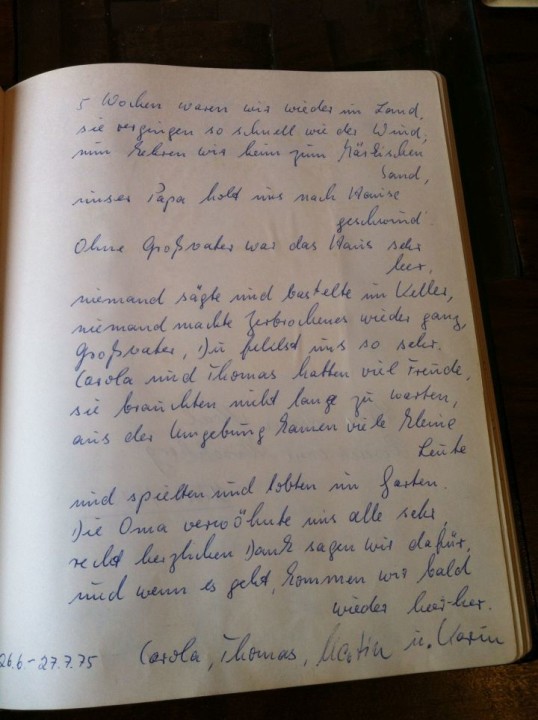 5 Wochen waren wir wieder im Land,
sie vergingen so schnell wie der Wind,
nun kehren wir heim zum Märkischen
Sand,
unser Papa holt uns nach Hause
geschwind.
Ohne Großvater war das Haus sehr
leer,
niemand sägte und bastelte im Keller,
niemand machte Zerbrochenes wieder ganz,
Großvater, Du fehlst uns so sehr.
Carola und Thomas hatten viel Freude,
sie brauchten nicht lange zu warten,
aus der Umgebung kamen viele kleine
Leute
und spielten und tobten im Garten.
Die Oma verwöhnte uns alle sehr,
recht herzlichen Dank sagen wir dafür,
und wenn es geht, kommen wir bald
wieder hier-her.
Carola, Thomas, Martin u. Karin
26.6-27.7.75